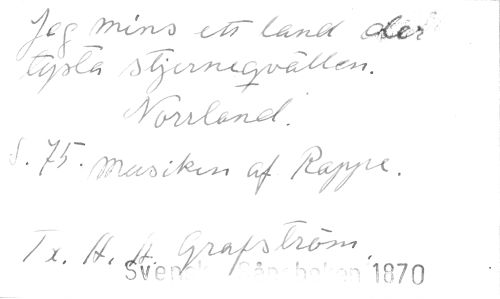 Jag mins ett land der
tysta stjerneqvällen.
Norrland.
S. 75. musiken af Rappe.
Tx. A. A. Grafström.
Svenska Sångboken 1870